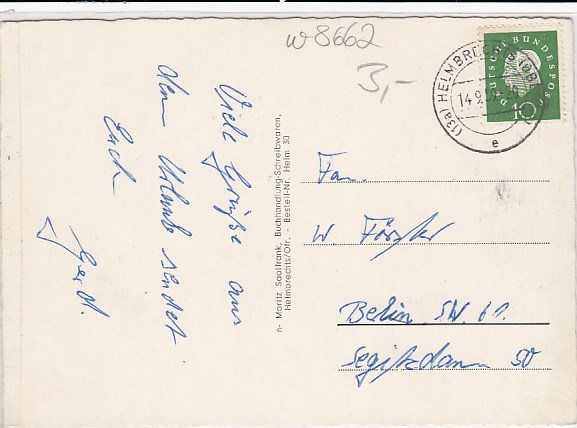 w 8662
3,-
DEUTSCHE BUNDESPOST
10
(13a) HELMBRECHTS
14.9.
e
Viele Grüße aus
dem Urlaub sendet
Euch
Gerd.
n- Moritz Saalfrank, Buchhandlung-Schreibwaren,
Helmbrechts/Ofr. - Bestell-Nr. Helm 30
Fam.
W Förster
Berlin SW. 61.
Segitzdamm 50